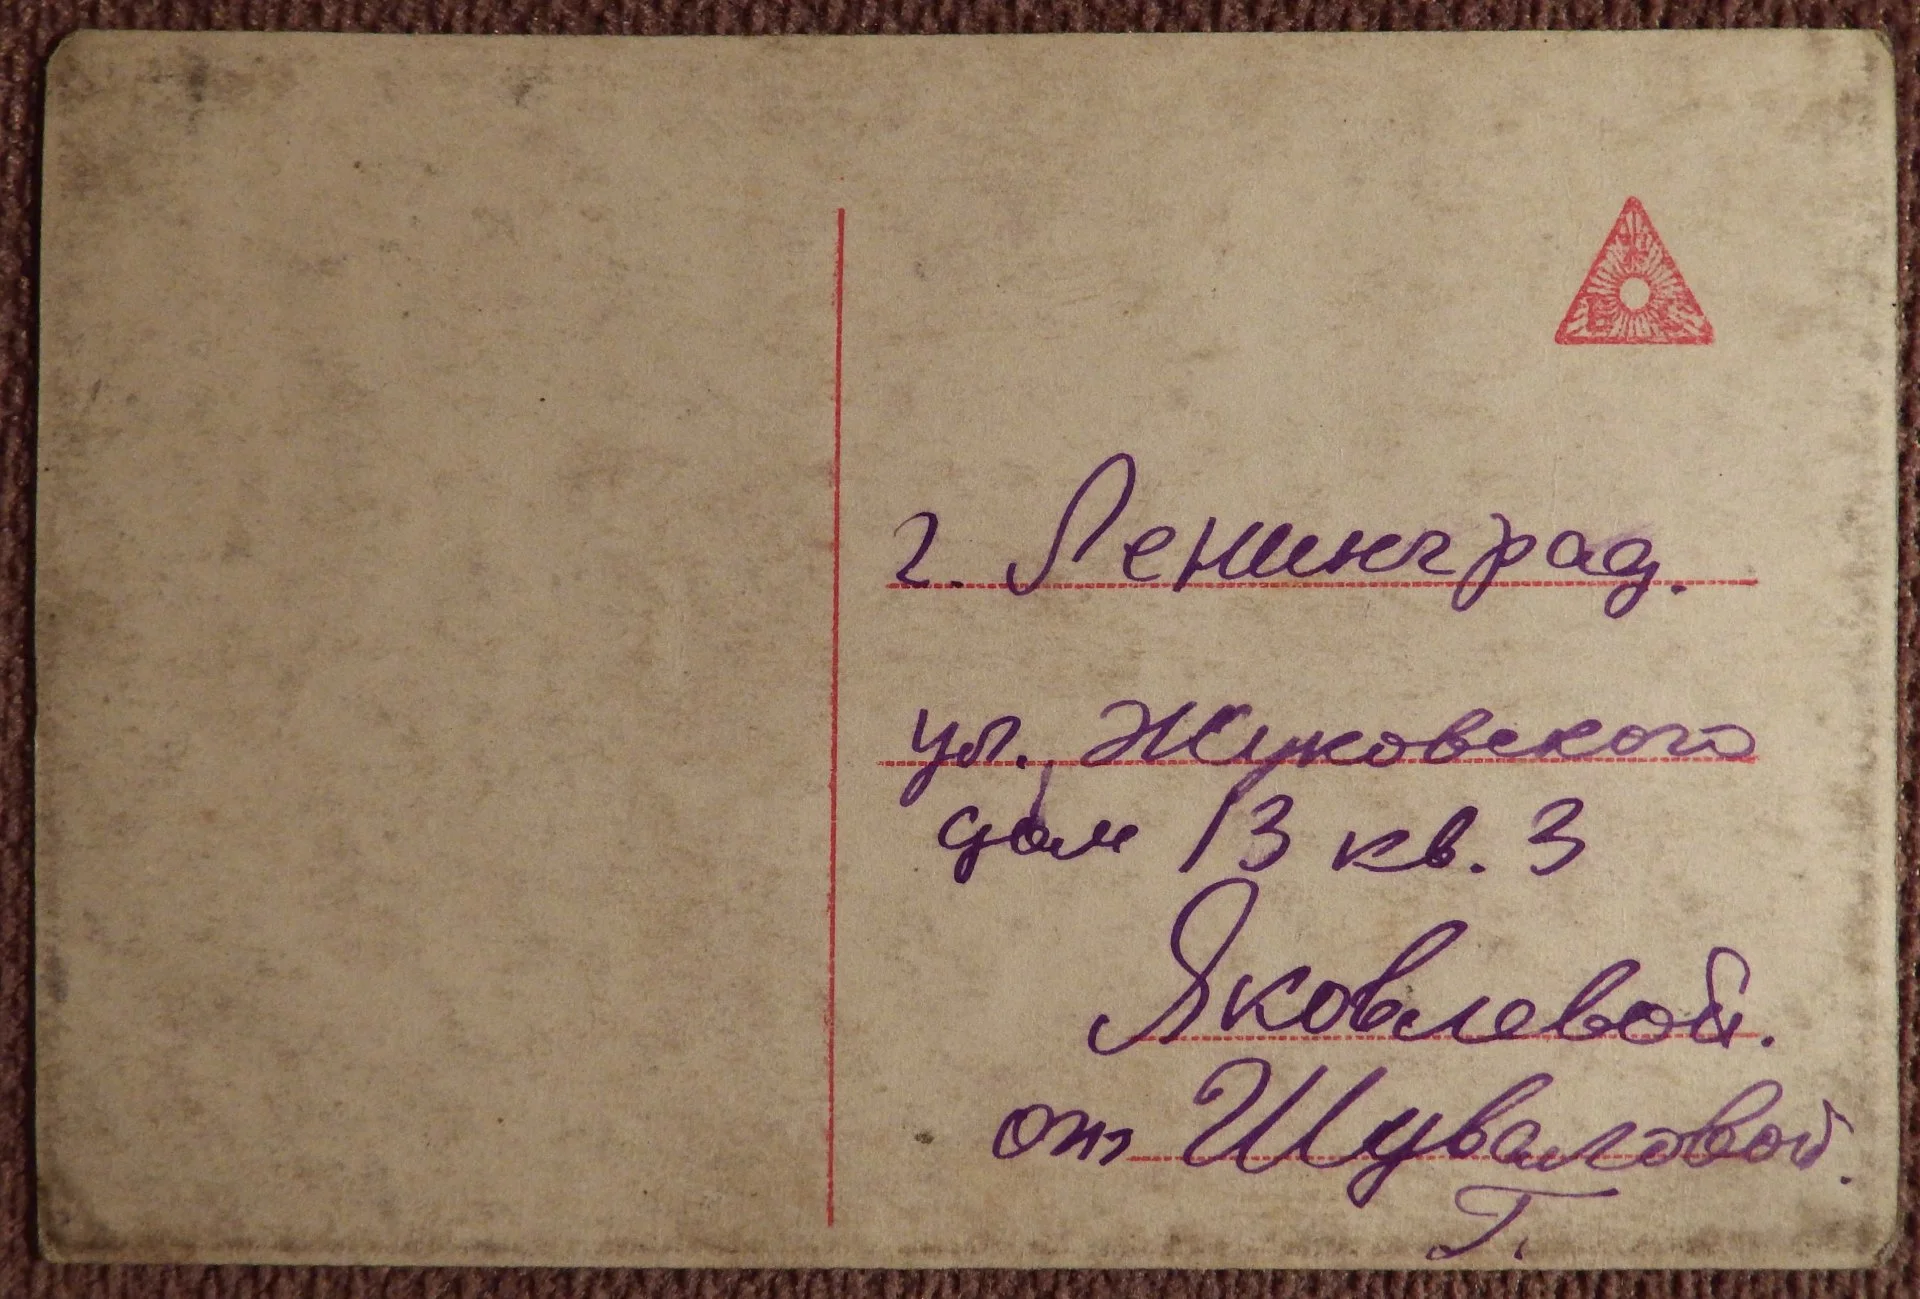 г. Ленинград.
ул. Жуковского
дом 13 кв. 3
Яковлевой.
от Шуваловой.
Г.